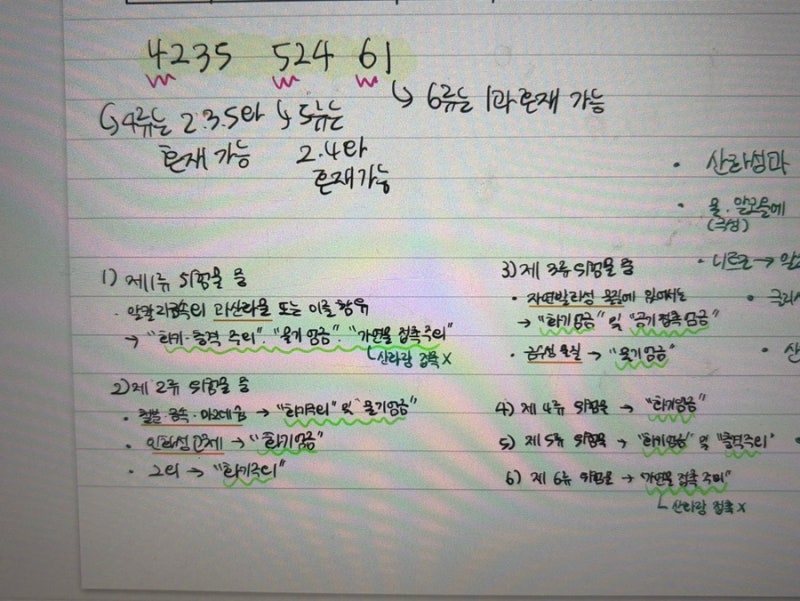 4235 524 61
↳4류는 2.3.5와 혼재 가능
↳5류는 2.4와 혼재가능
↳ 6류는 1과 혼재 가능
1) 제1류 위험물 중
· 알칼리금속의 과산화물 또는 이를 함유
→ "화기·충격 주의". "물기 엄금". "가연물 접촉주의"
↳산화랑 접촉 X
2) 제 2류 위험물 중
· 철분·금속·마그네슘 → "화기주의" 및 "물기엄금"
· 인화성고체 → "화기엄금"
· 그외 → "화기주의"
3) 제 3류 위험물 중
· 자연발화성 물질에 있어서는
→ "화기엄금" 및 "공기접촉 엄금"
· 금수성 물질 → "물기엄금"
4) 제 4류 위험물 → "화기엄금"
5) 제 5류 위험물 → "화기엄금" 및 "충격주의"
6) 제 6류 위험물 → "가연물 접촉 주의"
↳산화랑 접촉 X
· 산화성과
· 물·알코올에
(극성)
· 니트로 →